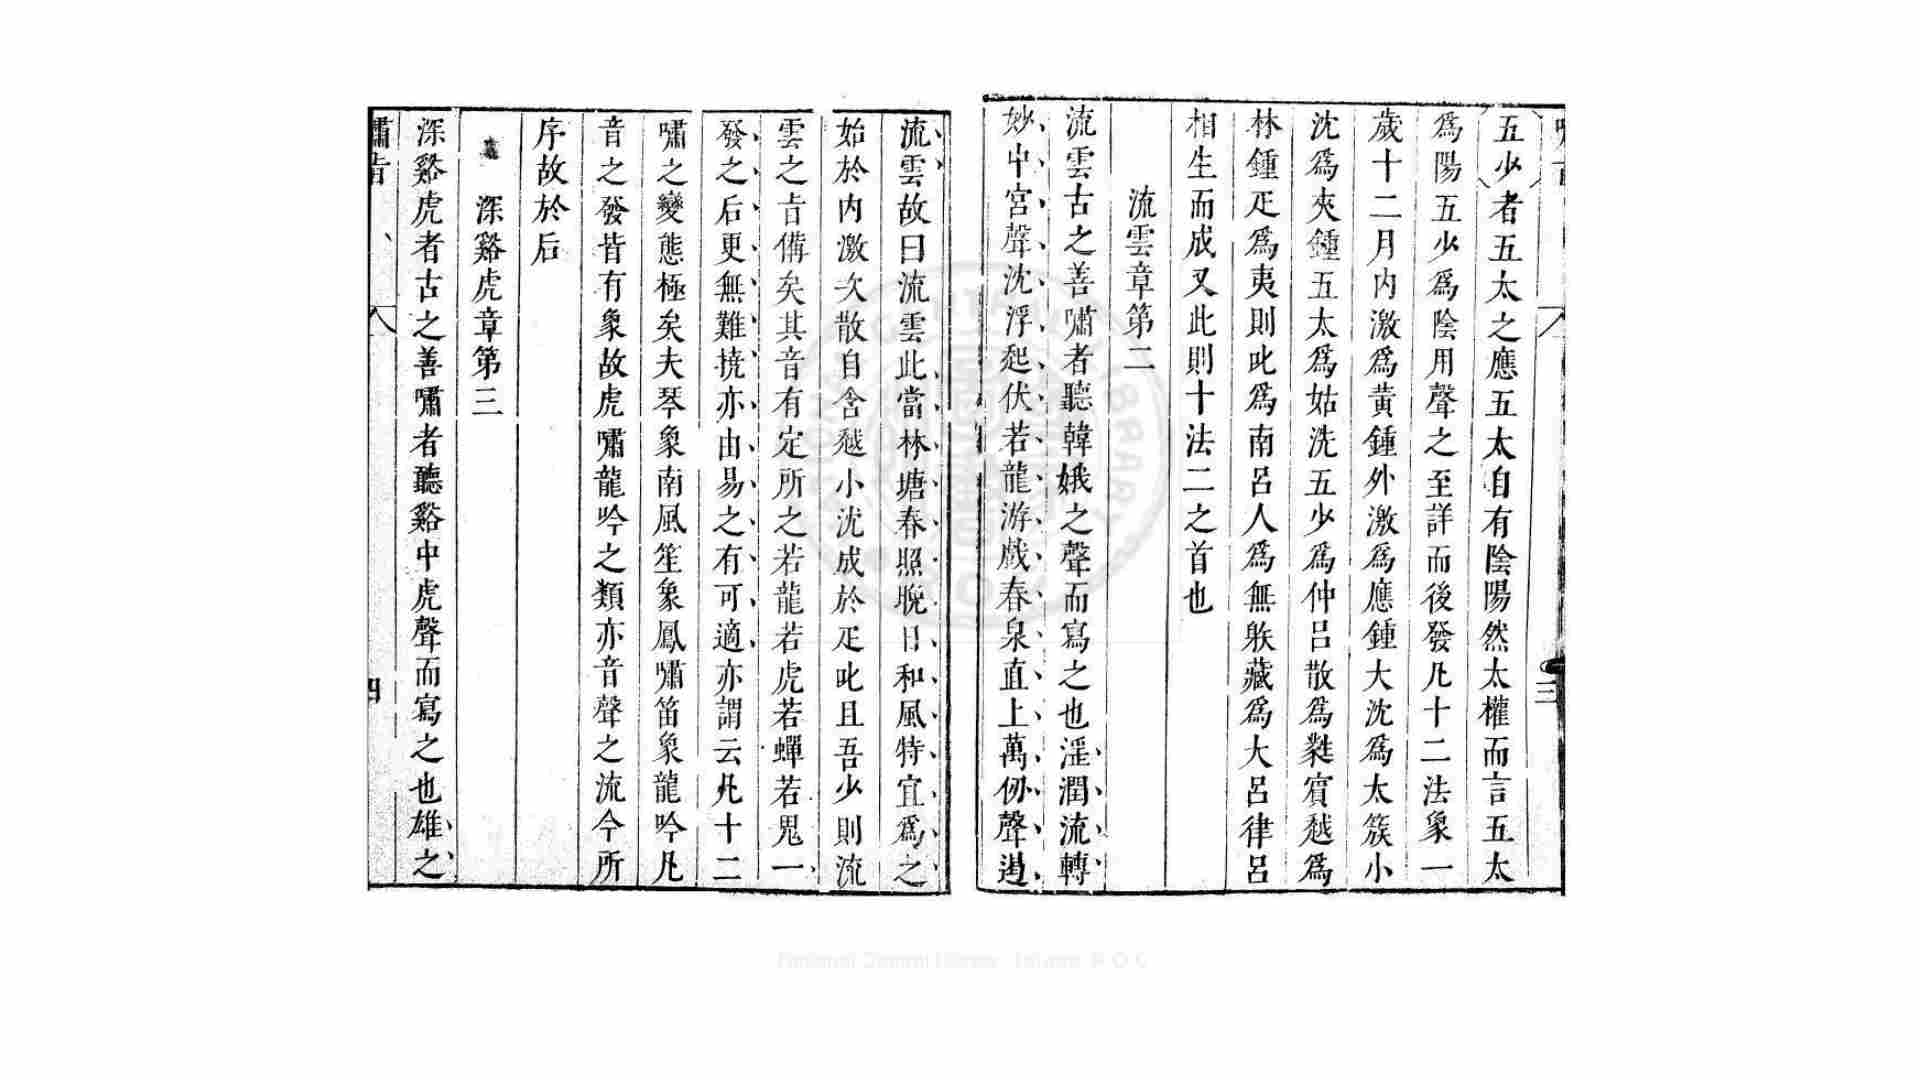 五少者五太之應五太自有陰陽然太權而言五太
爲陽五少爲陰用聲之至詳而後發凡十二法象一
歲十二月内激爲黃鍾外激爲應鍾大沈爲太簇小
沈爲夾鍾五太爲姑洗五少爲仲呂散爲蕤賓越爲
林鍾疋爲夷則叱爲南呂人爲無躲藏爲大呂律呂
相生而成又此則十法二之首也
流雲章第二
流雲古之善嘯者聽韓娥之聲而寫之也淫潤流轉
妙中宮聲沈浮起伏若龍游戲春泉直上萬仞聲遏
流雲故曰流雲此當林塘春照晚日和風特宜爲之
始於内激次散自含越小沈成於疋叱且吾少則流
雲之旨備矣其音有定所之若龍若虎若蟬若鬼一
發之后更無難撓亦由易之有可適亦謂云凡十二
嘯之變態極矣夫琴象南風笙象鳳嘯笛象龍吟凡
音之發皆有象故虎嘯龍吟之類亦音聲之流今所
序故於后
深谿虎章第三
深谿虎者古之善嘯者聽谿中虎聲而寫之也雄之
嘯旨
四
三